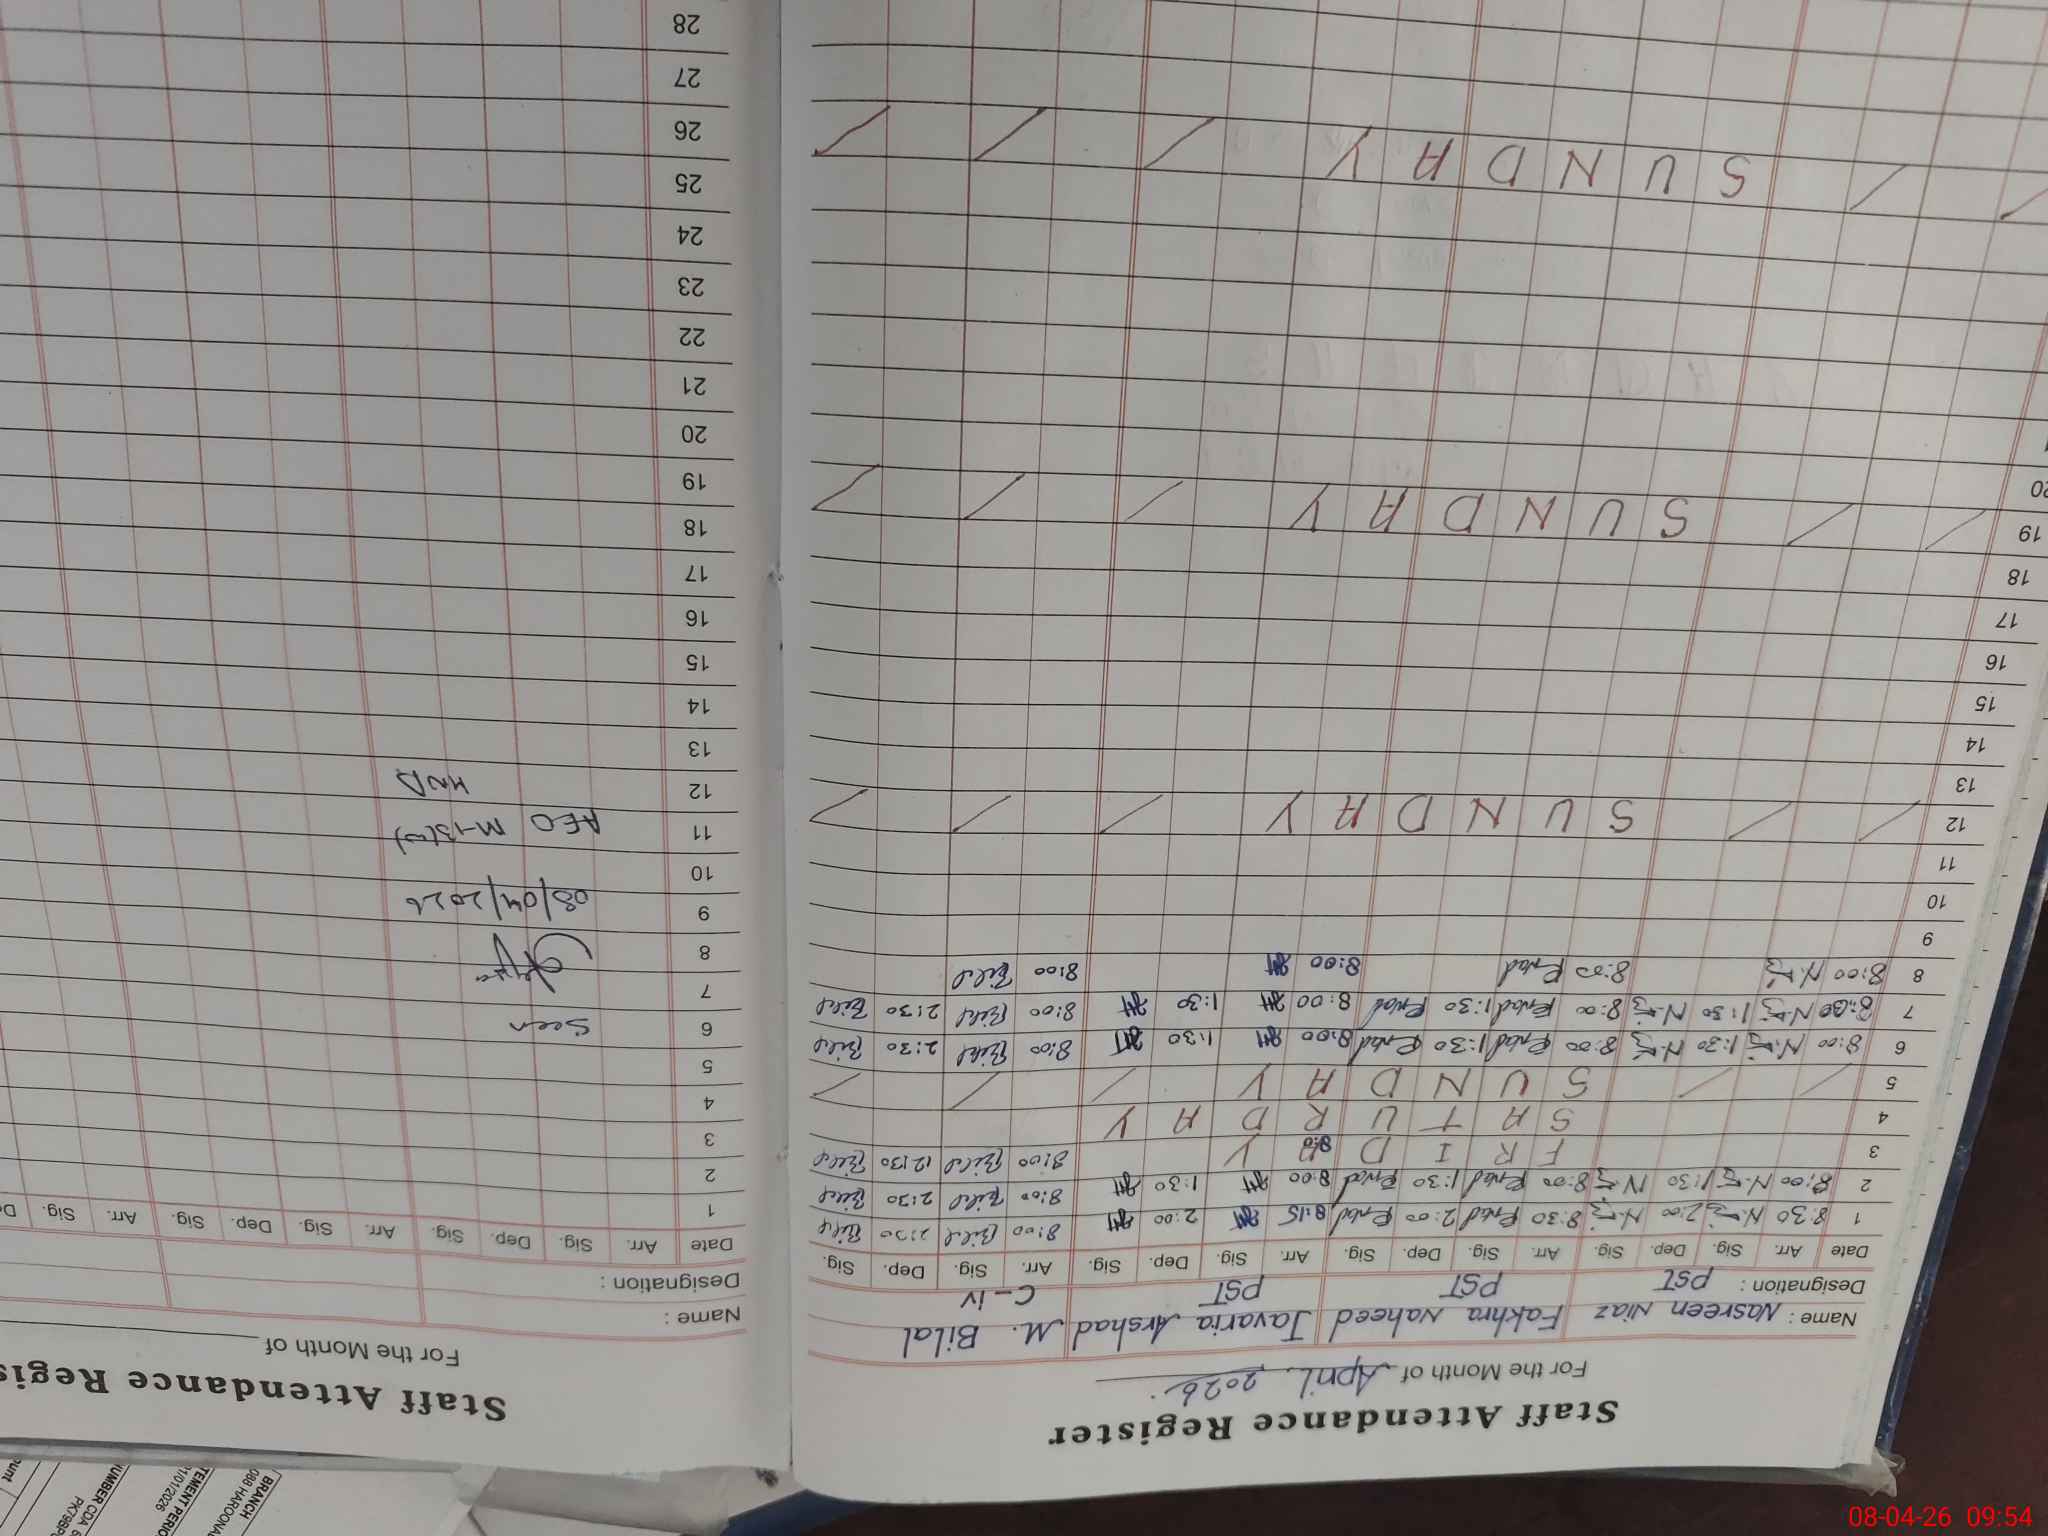 Staff Attendance Register
For the Month of April 2026.
Name : Nasreen Niaz Fakhra Naheed Javaria Arshad M. Bilal
Designation : PST PST PST C-iv
Date Arr. Sig. Dep. Sig. Arr. Sig. Dep. Sig. Arr. Sig. Dep. Sig. Arr. Sig. Dep. Sig.
1 8:30 2:00 8:30 2:00 8:15 2:00 8:00 Bilal 2:30 Bilal
2 8:00 1:30 8:00 1:30 8:00 1:30 8:00 Bilal 2:30 Bilal
3 F R I D A Y 8:00 Bilal 12:30 Bilal
4 S A T U R D A Y
5 S U N D A Y
6 8:00 1:30 8:00 1:30 8:00 1:30 8:00 Bilal 2:30 Bilal
7 8:00 1:30 8:00 1:30 8:00 1:30 8:00 Bilal 2:30 Bilal
8 8:00 8:00 8:00 8:00 Bilal
9
10
11
12 S U N D A Y
13
14
15
16
17
18
19 S U N D A Y
20
S U N D A Y
Staff Attendance Regis
For the Month of
Name :
Designation :
Date Arr. Sig. Dep. Sig. Arr. Sig. Dep. Sig. Arr. Sig. De
1
2
3
4
5
6 Seen
7
8
9 08/04/2026
10
11 AEO M-13(w)
12 HND
13
14
15
16
17
18
19
20
21
22
23
24
25
26
27
28
BRANCH
088 HAROONA
TEMENT PERIO
01/01/2026
UMBER CDA
ount
08-04-26 09:54